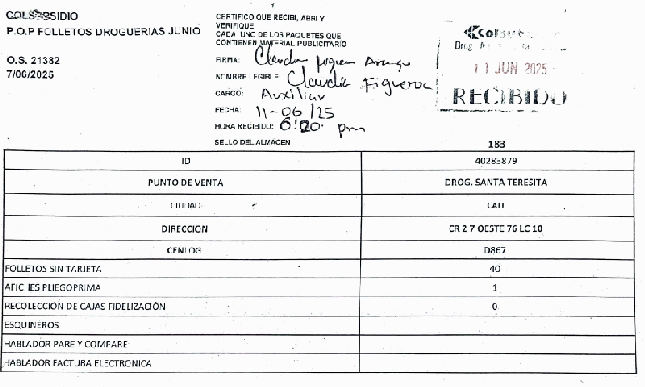 COLSUBSIDIO
P.O.P FOLLETOS DROGUERIAS JUNIO
O.S. 21382
7/06/2025
CERTIFICO QUE RECIBI, ABRI Y
VERIFIQUE
CADA UNO DE LOS PAQUETES QUE
CONTIENEN MATERIAL PUBLICITARIO
FIRMA: Claudia
NOMBRE LEGIBLE Claudia Figueroa
CARGO: Auxiliar
FECHA: 11-06/25
HORA RECIBIDO: 6:20 pm
SELLO DEL ALMACEN
11 JUN 2025
RECIBIDO
183
ID 40285879
PUNTO DE VENTA DROG. SANTA TERESITA
CIUDAD CALI
DIRECCION CR 2 7 OESTE 76 LC 10
CENLOG D867
FOLLETOS SIN TARJETA 40
AFICHES PLIEGO PRIMA 1
RECOLECCIÓN DE CAJAS FIDELIZACIÓN 0
ESQUINEROS
HABLADOR PARE Y COMPARE
HABLADOR FACTURA ELECTRONICA